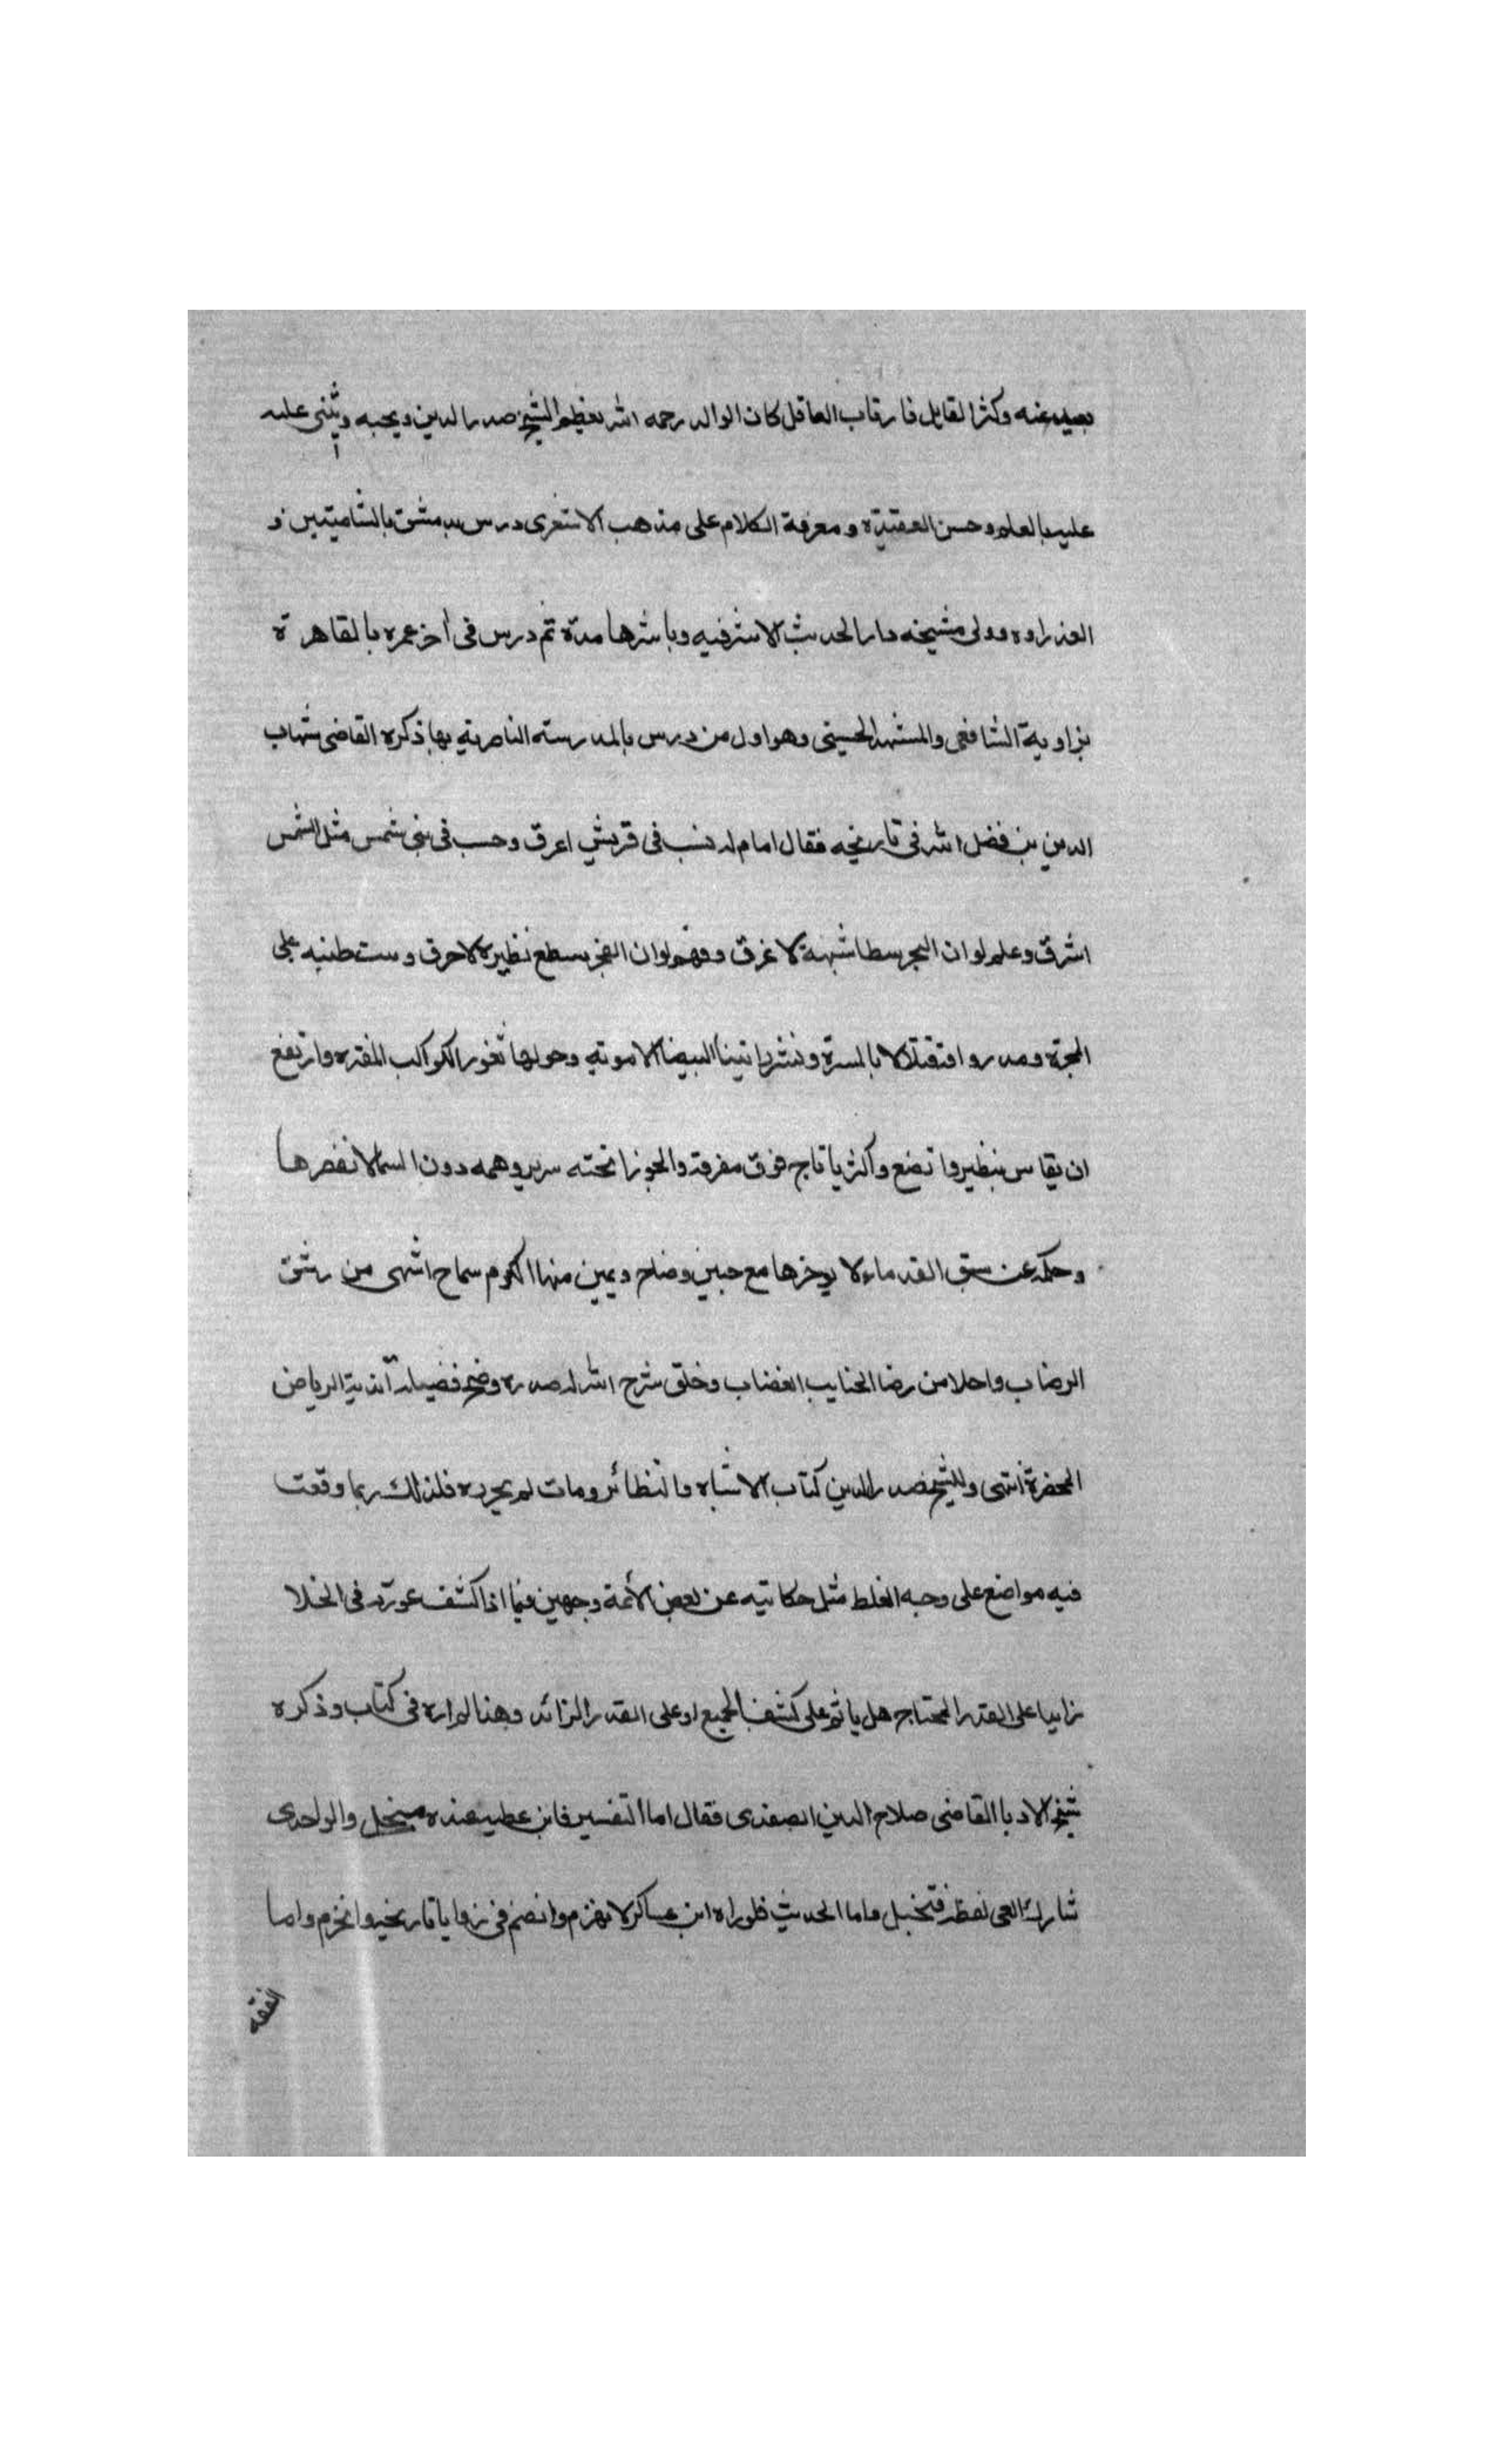 بعيد عنه وكثر القايل فارقاب العاقل كان الوالد رحمه الله يعظم الشيخ صدر الدين ويحبه ويثنى عليه
عليه بالعلم وحسن العقيدة ومعرفة الكلام على مذهب الاشعرى درس بدمشق بالشاميتين و
العذراوه وولى مشيخه دار الحديث الاشرفيه وباشرها مدة ثم درس فى أخر عمره بالقاهرة
بزاوية الشافعى والمشهد الحسينى وهو اول من درس بالمدرسته الناصرية بها ذكره القاضى شهاب
الدين بن فضل الله فى تاريخه فقال امام له نسب فى قريش اعرق وحسب فى بنى شمس مثل الشمس
اشرق وعلم لو ان البحر سطا شبهة لاغرق وفهم لو ان الفجر سطع نظيره لاحرق و طنبه على
المجرة ومد رواقه بالمسرة ونشر البيضا الاموية وحولها ثغور الكواكب المفتره وارتفع
ان يقاس بنظير واتضع والثريا تاج فوق مفرقه والجوزا تحته سرير وهمه دون السما لا نقصرها
وحكمه عن سبق القدماء لا يوخرها مع جبين وضاح ويمين منها الكرم سماح اشهى من رشق
الرضاب واحلا من رضا الحنايب الغضاب وخلق شرح الله له صدره وضح فضيلة اندية الرياض
المحضرة انتهى وللشيخ صدر الدين كتاب الاشباه والنظائر ومات لم يحرره فلذلك ربما وقعت
فيه مواضع على وجه الغلط مثل حكاتيه عن بعض الأئمة وجهين فيما اذا كشف عورته فى الخلا
زايدا على القدر المحتاج هل ياثم على كشف الجميع او على القدر الزائد وهذا لم اره فى كتاب وذكره
شيخ الادبا القاضى صلاح الدين الصفدى فقال اما التفسير فابن عطيه عنده مبخل والواحدى
شارك العى لفظه فتخبل واما الحديث فلو راه ابن عساكر لانهزم وانضم فى زوايا تاريخيه وانخزم واما
الفقه